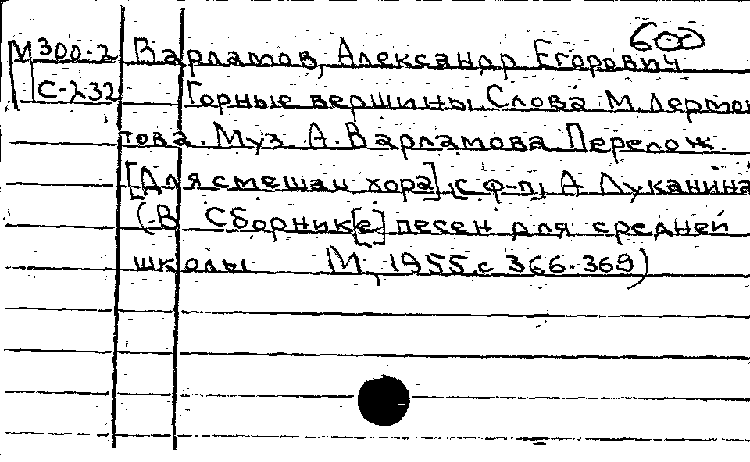 600
М300-2 Варламов, Александр Егорович
С-232 Горные вершины. Слова М. Лермон
това. Муз. А. Варламова. Перелож.
[Для смешан. хора], с ф-п, А. Луканина
(-В Сборник[е] песен для средней
школы М, 1955 с 366-369)